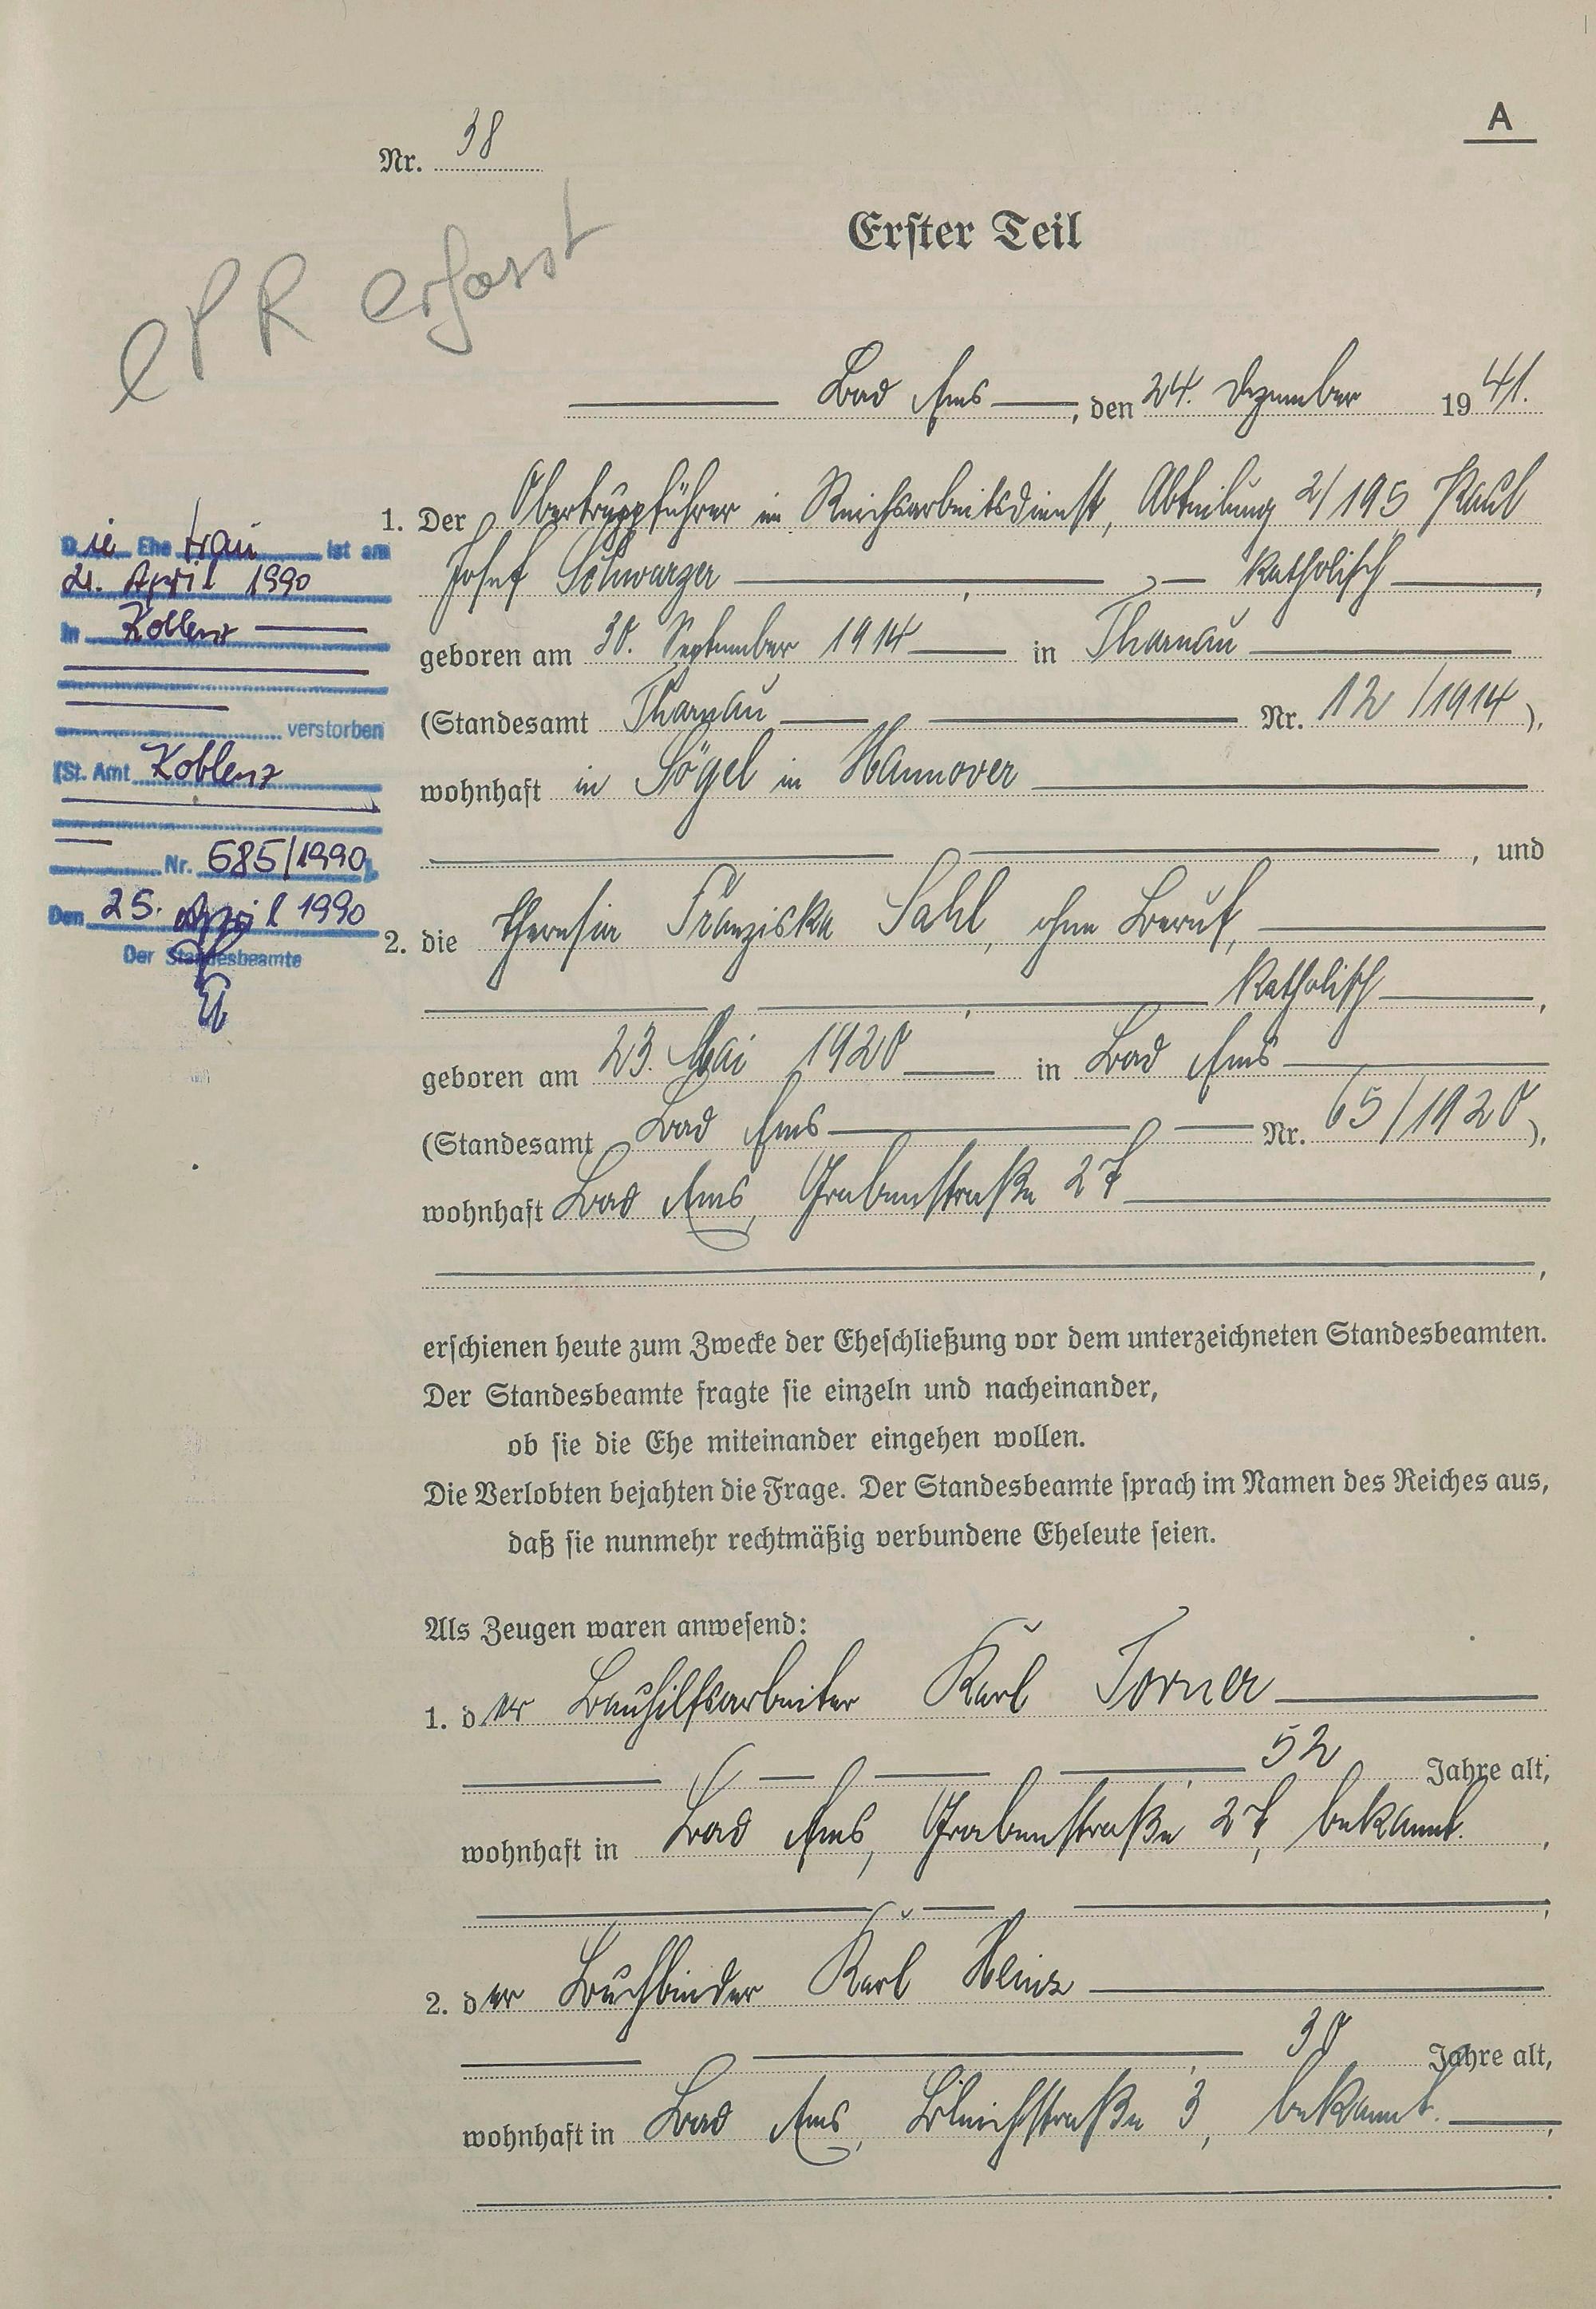 A
Nr. 38
Erster Teil
ePR erfasst
Bad Ems, den 24. Dezember 1941.
1. Der Obertruppführer im Reichsarbeitsdienst, Abteilung 2/195 Paul
Josef Schwarzer, katholisch,
geboren am 30. September 1914 in Tharnau
(Standesamt Tharnau Nr. 12/1914),
wohnhaft in Sögel in Hannover
, und
2. die Theresia Franziska Sahl, ohne Beruf,
katholisch,
geboren am 23. Mai 1920 in Bad Ems
(Standesamt Bad Ems Nr. 65/1920),
wohnhaft Bad Ems, Grabenstraße 27
,
erschienen heute zum Zwecke der Eheschließung vor dem unterzeichneten Standesbeamten.
Der Standesbeamte fragte sie einzeln und nacheinander,
ob sie die Ehe miteinander eingehen wollen.
Die Verlobten bejahten die Frage. Der Standesbeamte sprach im Namen des Reiches aus,
daß sie nunmehr rechtmäßig verbundene Eheleute seien.
Als Zeugen waren anwesend:
1. der Bauhilfsarbeiter Karl Torner
52 Jahre alt,
wohnhaft in Bad Ems, Grabenstraße 27, bekannt.,
;
2. der Buchbinder Karl Heinz
30 Jahre alt,
wohnhaft in Bad Ems, Bleichstraße 3, bekannt.,
.
Die Ehefrau ist am
21. April 1990
in Koblenz
verstorben
(St. Amt Koblenz
Nr. 685/1990).
Den 25. April 1990
Der Standesbeamte